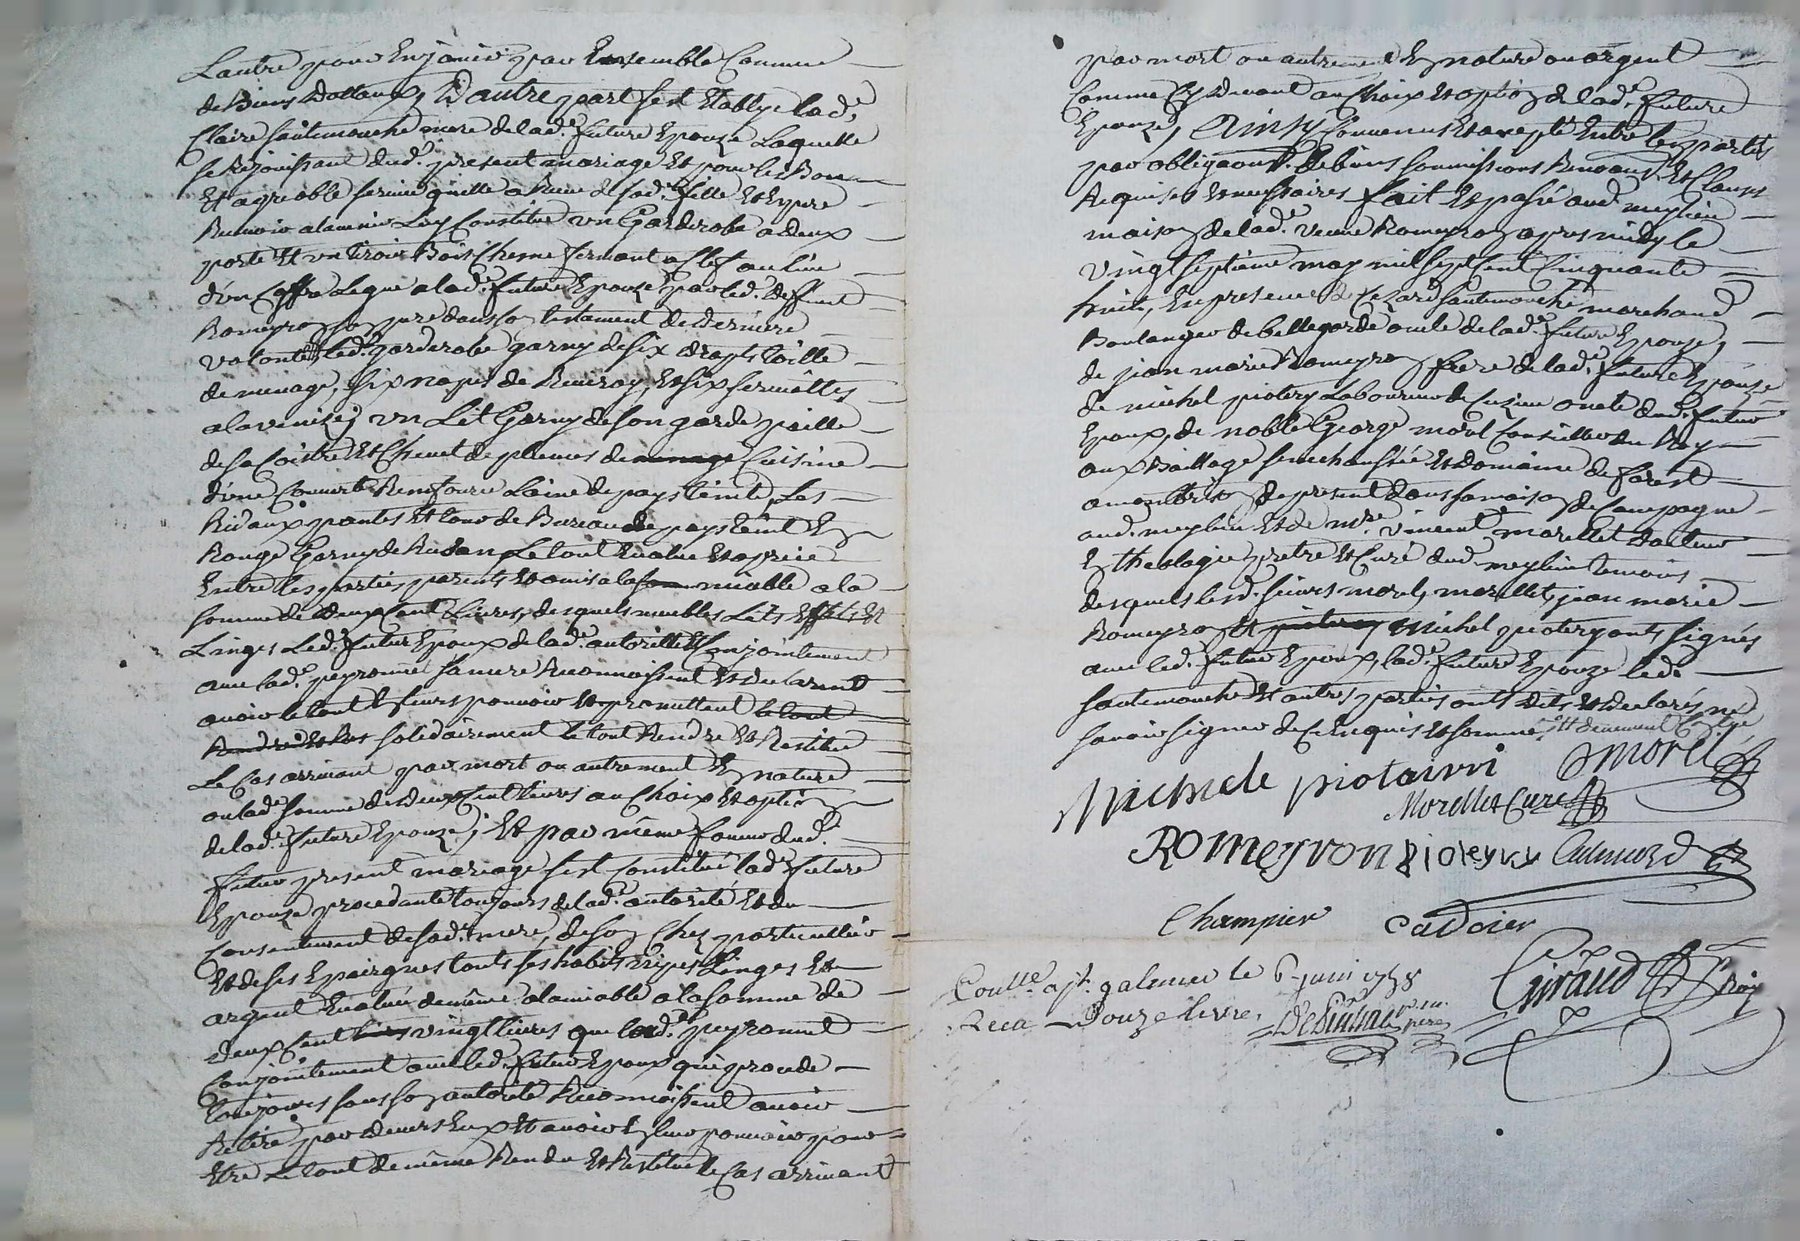 Lautre pour En jouir par Ensemble Comme
de Biens Dottaux, D'autre part s'est Etablye lad.e
Claire sautemouche mere de lad.e future Epouze Laquelle
se Rejouissant dud. present mariage Et pour les Bons
Et agreable service quelle a Receu de sad. fille Et Espere
Recevoir alavenir Luy Constitue un Garderobe a deux
porte Et un tiroir Bois Chesne fermant a Clef au lieu
d'un Coffre legué a lad.e future Epouze par led. deffunt
Romeyron son pere dans son testament de derniere
volonté led. garderobe garny de six draps toille
de menage, six napes de Et six serviettes
alavenise, un Lit Garny de son garde paille
de sa Coistre Et Chevet de plumes de menage Cuisine
d'une Couverte Laine de pays teinte, Les
Ridaux pantes Et tour de Bureau de pays teint En
Rouge Garny de Ruban Le tout Evalué Et aprecié
Entre les parties, parents Et amis a la som miable a la
somme de deux Cent Livres, desquels meubles Lits Effets Et
Linges Led. futur Epoux de lad.e autorité Et Conjointement
avec lad.e peyronne sa mere Reconnoissent Et declarent
avoir le tout a leurs pouvoir Et promettent le tout
Rendre Et Res solidairement le tout Rendre Et Restituer
Le Cas arrivant par mort ou autrement En nature
ou lad.e somme de deux Cent livres au Choix Et option
de lad.e future Epouze; Et par même faveur dud.
futur present mariage s'est Constitué lad.e future
Epouze procedante toujours de lad.e autorité Et du
Consentement de sad. mere, de son Chef particullier
Et de ses Epairgnes touts ses habits nipes Linges Et
argent Evalué de même alamiable a la somme de
deux Cent livres vingt livres que lad.e peyronne
Conjointement avec led. futur Epoux qui procede
toujours sous son autorité Reconnoissent avoir
Retiré par devers Eux Et avoir En leur pouvoir pour
Etre Le tout de même Rendu Et Restitué le Cas arrivant
par mort ou autrement En nature ou argent
Comme Cy Devant au Choix Et option de lad.e future
Epouze, Ainsy Convenu Et accepté Entre les parties
par obligaons. de biens soumissions Renoans. Et Clauses
Requises Et necessaires fait Et passé aud. meylieu
maison de lad.e veuve Romeyron apres midy le
vingt septieme may mil sept Cent Cinquante
huit, En presence de Cezard sautemouche marchand
Boulanger de bellegarde oncle de lad.e future Epouze,
de jean marie Romeyron frere de lad.e future Epouze
de michel piotery Laboureur de Cuzieu oncle dud. futur
Epoux, de noble George morel Conseiller du Roy
aux Baillage senechaussée Et domaine de forest
a montbrison de present dans sa maison de Campagne
aud. meylieu Et de mre. vincent morellet docteur
En theologie pretre Et Curé dud. meylieu temoins
desquels lesd. sieurs morel, morellet, jean marie
Romeyron Et piotery Michel piotery ont signés
avec led. futur Epoux, lad.e future Epouze led.
sautemouche Et autres parties ont dits Et declarés ne
savoir signer de Ce Enquis Et sommé
Michele piotairi Gmorel
Morellet Curé
Romeyron pioteyry
Champier cadoier
Coullé a st. galmier le 6 juin 1758 Giraud
Reca Douze livre,